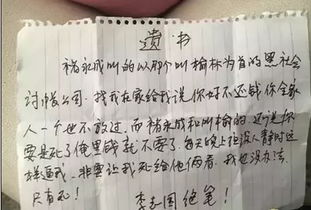 遗书
褚永成叫的以那个叫榆林为首的黑社会
讨账公司，找我在家给我说你好不还钱你全家
人一个也不放过，而褚永成和叫榆的还说你
要是死了俺里钱就不要了。每天晚上夜深人静时这
样逼我。非要让我死给他俩看，我也没办法
只有死！
李玉国绝笔！